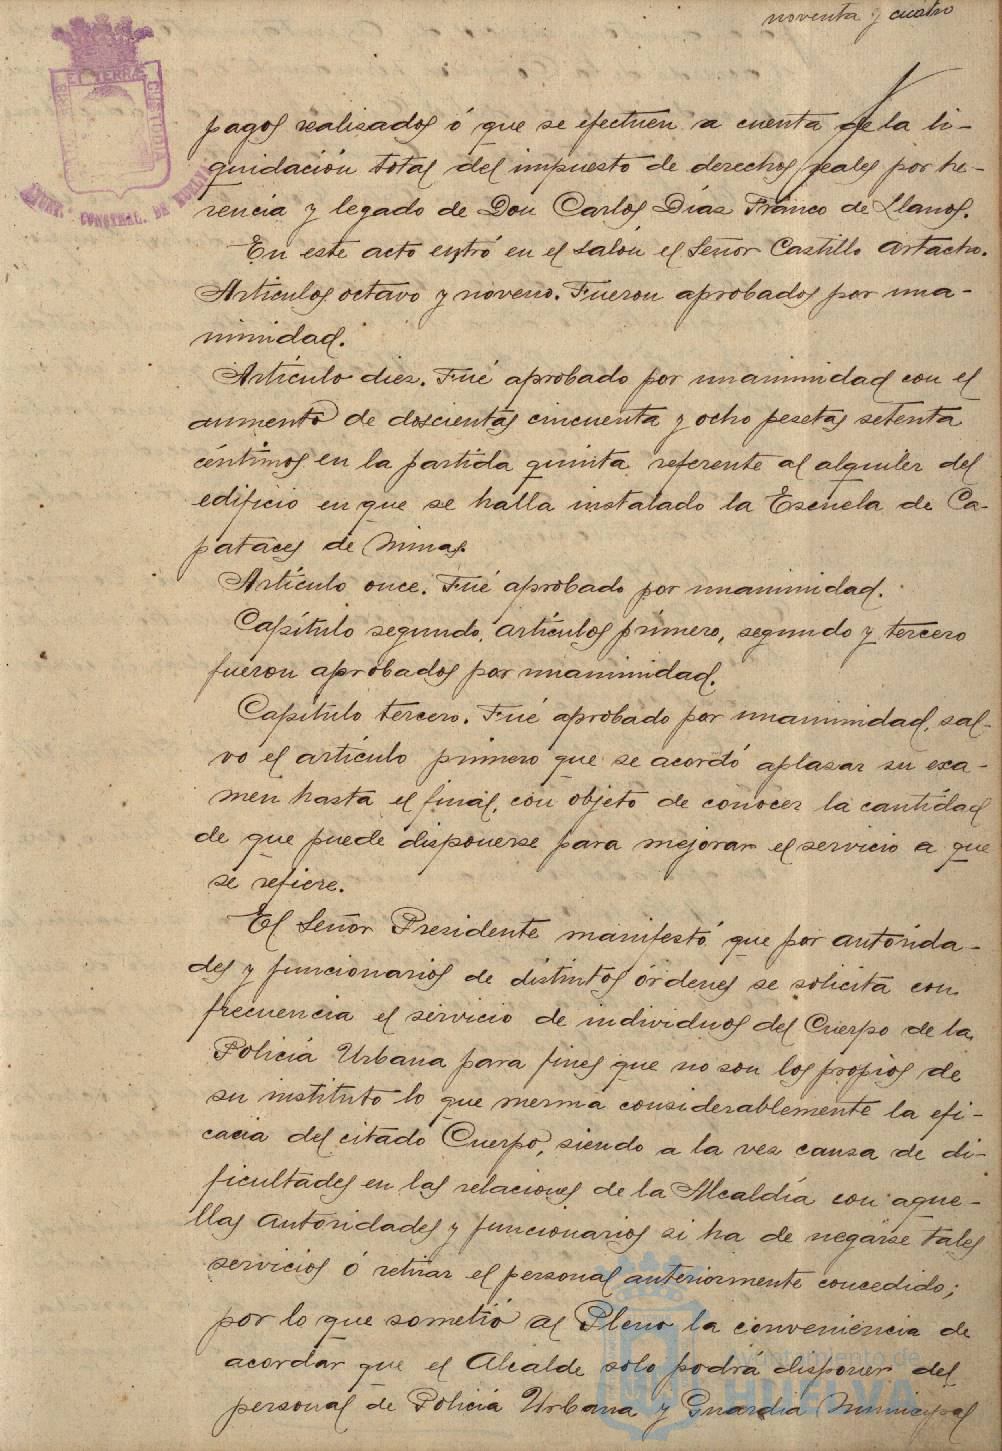 noventa y cuatro
ET TERRÆ
CUSTODIA
AYUNT. CONSTNAL. DE HUELVA
pagos realisados ó que se efectuen a cuenta de la li-
quidación total del impuesto de derechos reales por he-
rencia y legado de Don Carlos Díaz Franco de Llanos.
En este acto entró en el salón el Señor Castillo Artacho.
Artículos octavo y noveno. Fueron aprobados por una-
nimidad.
Artículo diez. Fué aprobado por unanimidad con el
aumento de doscientas cincuenta y ocho pesetas setenta
céntimos en la partida quinta referente al alquiler del
edificio en que se halla instalado la Escuela de Ca-
pataces de Minas.
Artículo once. Fué aprobado por unanimidad.
Capítulo segundo, artículos primero, segundo y tercero
fueron aprobados por unanimidad.
Capítulo tercero. Fué aprobado por unanimidad, sal-
vo el artículo primero que se acordó aplasar su exa-
men hasta el final, con objeto de conocer la cantidad
de que puede disponerse para mejorar el servicio a que
se refiere.
El Señor Presidente manifestó que por autorida-
des y funcionarios de distintos órdenes se solicita con
frecuencia el servicio de individuos del Cuerpo de la
Policía Urbana para fines que no son los propios de
su instituto lo que merma considerablemente la efi-
cacia del citado Cuerpo, siendo a la vez causa de di-
ficultades en las relaciones de la Alcaldía con aque-
llas autoridades y funcionarios si ha de negarse tales
servicios ó retirar el personal anteriormente concedido;
por lo que sometió al Pleno la conveniencia de
acordar que el Alcalde solo podrá disponer del
personal de Policía Urbana y Guardia Municipal
Ayuntamiento de
HUELVA